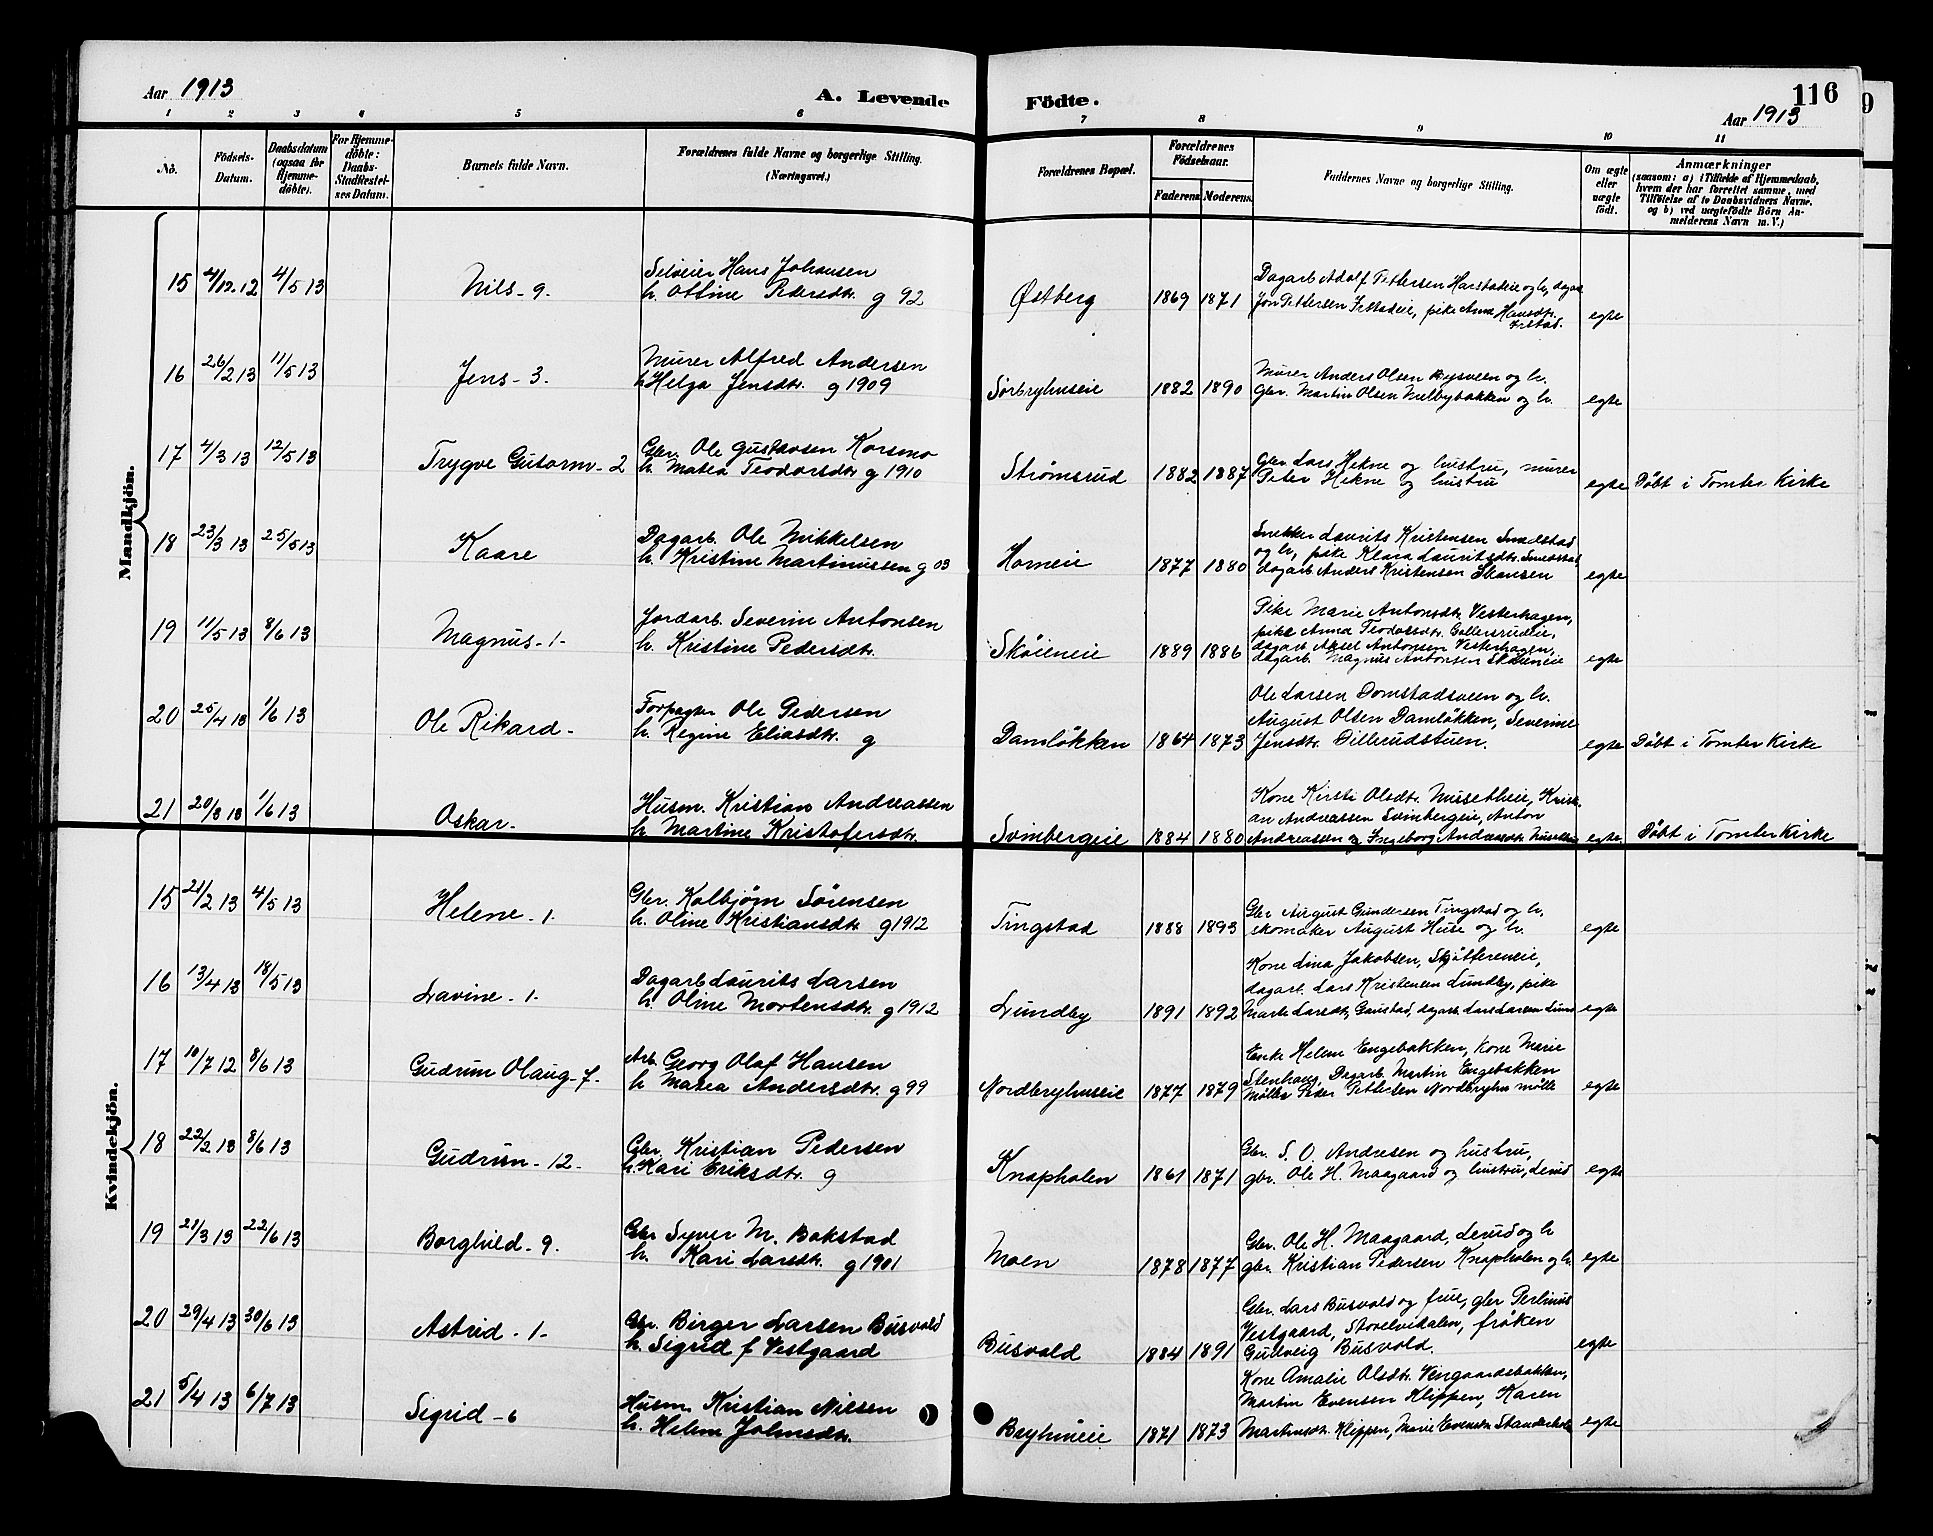 116
Aar 1913
A. Levende Födte.
Aar 1913
1 2 3 4 5 6 7 8 9 10 11
No.
Födsels-
Datum.
Daabsdatum
(ogsaa for
Hjemme-
döbte).
For Hjemme-
döbte:
Daabs-
Stadfæstel-
ses Datum.
Barnets fulde Navn.
Forældrenes fulde Navne og borgerlige Stilling.
(Næringsvei.)
Forældrenes Bopæl.
Forældrenes
Födselsaar.
Faderens. Moderens.
Faddernes Navne og borgerlige Stilling.
Om ægte
eller
uægte
født.
Anmærkninger
(saasom: a) i Tilfælde af Hjemmedaab,
hvem der har forrettet samme, med
Tilföielse af to Daabsvidners Navne,
og b) ved uægtefödte Börn An-
melderens Navn m. V.)
Mandkjön.
15 4/12.12 4/5 13 Nils - 9. Selveier Hans Johansen
h. Ottine Pedersdtr. g 92
Østberg 1869 1871 Dagarb Adolf Pettersen Harstadeie og h, dagar
Jon Pettersen Frstadeie, pike Anna Hansdtr.
egte
16 26/2 13 11/5 13 Jens - 3. Murer Alfred Andersen
h Helga Jensdtr. g 1909
Sørbryhuseie 1882 1890 Murer Anders Olsen Bysveen og h.
gbr. Martin Olsen Melbybakken og h. egte
17 4/3 13 12/5 13 Trygve Gutorm - 2 Gbr. Ole Gustavsen Korsmo
h. Matea Teodorsdtr g 1910
Strømsrud 1882 1887 Gbr Lars Hekne og hustru, murer
Peter Hekne og hustru egte Døbt i Tomter Kirke
18 23/3 13 25/5 13 Kaare Dagarb. Ole Mikkelsen
h. Kristine Martinussen g 03
Horneie 1877 1880 Snekker Laurits Kristensen Smedstad
og h, pike Klara Lauritsdtr. Smedstad
dagarb Anders Kristensen Skansen egte
19 11/5 13 8/6 13 Magnus - 1 - Jordarb. Severin Antonsen
h. Kristine Pedersdtr.
Skøieneie 1889 1886 Pike Marie Antonsdtr. Vesterhagen,
pike Anna Teodorsdtr. Gallerudeie,
dagarb Aksel Antonsen Vesterhagen,
dagarb. Magnus Antonsen Skøieneie egte
20 25/4 13 1/6 13 Ole Rikard - Forpagter Ole Pedersen
h. Regine Eliasdtr. g
Damløkken 1864 1873 Ole Larsen Domstadsveen og h.
August Olsen Damløkken, Severine
Jensdtr. Dillerudstuen. egte Døbt i Tomter Kirke
21 20/3 13 1/6 13 Oskar. Husm. Kristian Andreassen
h Martine Kristofersdtr.
Svinbergeie 1884 1880 Kone Kirsti Olsdtr. Mussetheie, Kristi-
an Andreassen Svinbergeie, Anton
Andreassen og Ingeborg Andreasdtr. egte. Døbt i Tomter Kirke
Kvindekjön.
15 21/2 13 4/5 13 Helene - 1. Gbr. Kolbjørn Sørensen
h. Oline Kristiansdtr g 1912
Tingstad 1888 1893 Gbr August Gundersen Tingstad og h.
skomaker August Huse og h. egte
16 13/4 13 18/5 13 Lavine - 1. Dagarb Laurits Larsen
h. Oline Mortensdtr. g 1912
Lundby 1891 1892 Kone Lina Jakobsen, Skøttereneie,
dagarb. Lars Kristensen Lundby, pike
Marte Larsdtr, Gaustad, dagarb Lars Larsen Lund egte
17 10/7 12 8/6 13 Gudrun Olaug - 7. Arb. Georg Olaf Hansen
h Matea Andersdtr. g 99
Nordbryhuseie 1877 1879 Enke Helene Engebakken, Kone Marie
Stenhaug, Dagarb Martin Engebakken
Møller Peder Pettersen Nordbryhn mølle egte
18 22/2 13 8/6 13 Gudrun - 12 - Gbr. Kristian Pedersen
h. Kari Eriksdtr. g
Knapholen 1861 1871 Gbr. S. O. Andresen og hustru,
gbr. Ole H. Maagaard og hustru, Lerud egte
19 21/3 13 22/6 13 Borghild - 9. Gbr Syver M. Bakstad
h. Kari Larsdtr. g 1901
Moen 1878 1877 Gbr. Ole H. Maagaard, Lerud og h
gbr. Kristian Pedersen Knapholen og h. egte
20 29/4 13 30/6 13 Astrid - 1 - Gbr. Birger Larsen Busvold
h. Sigrid f Vestgaard
Busvold 1884 1891 Gbr. Lars Busvold og frue, gbr Perlinus
Vestgaard, Storelvdalen, frøken
Gullveig Busvold. egte
21 5/4 13 6/7 13 Sigrid - 6 Husm. Kristian Nilsen
h. Helene Johnsdtr.
Bryhneie 1871 1873 Kone Amalie Olsdtr. Vengaardsbakken,
Martin Evensen Klippen, Karen
Martinsdtr. Klippen, Marie Evensdtr. egte